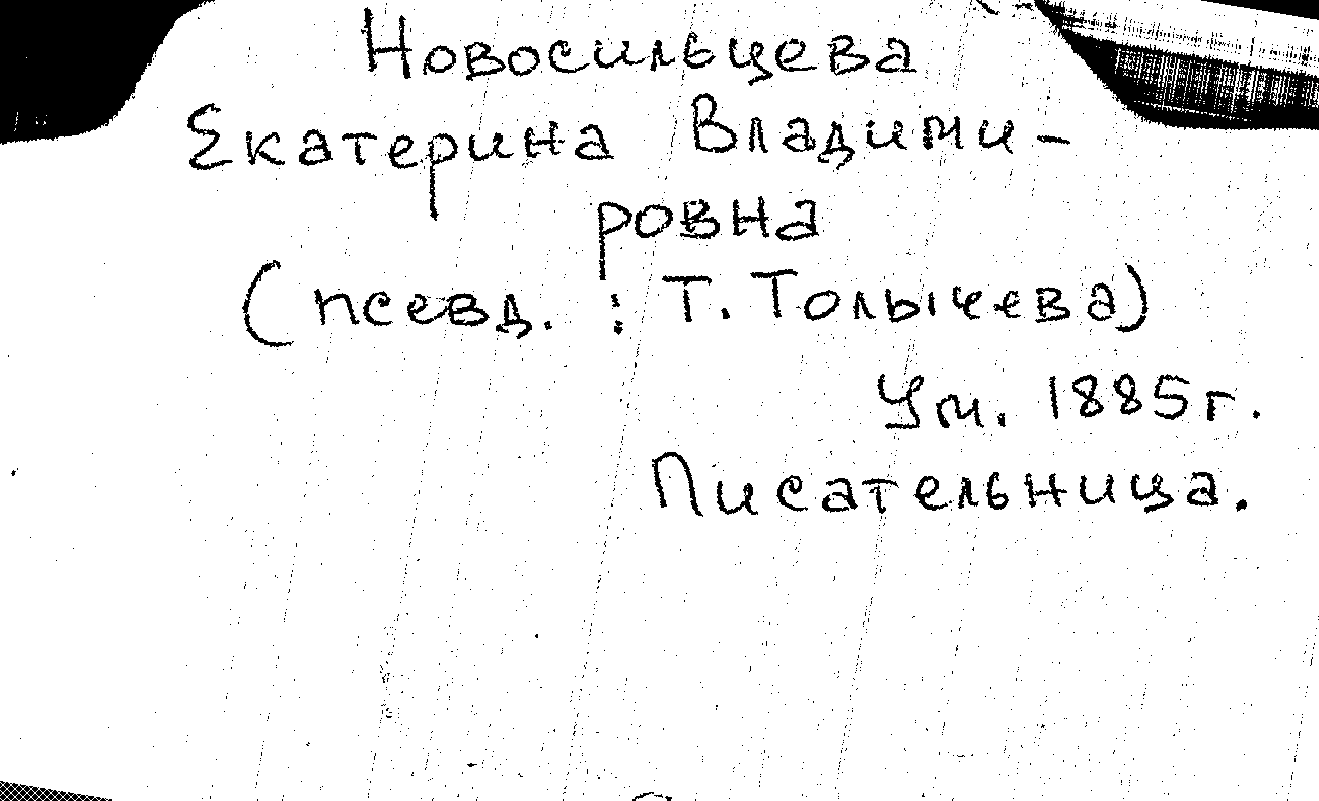 Новосильцева
Екатерина Владими-
ровна
(псевд. : Т. Толычева)
Ум. 1885г.
Писательница.